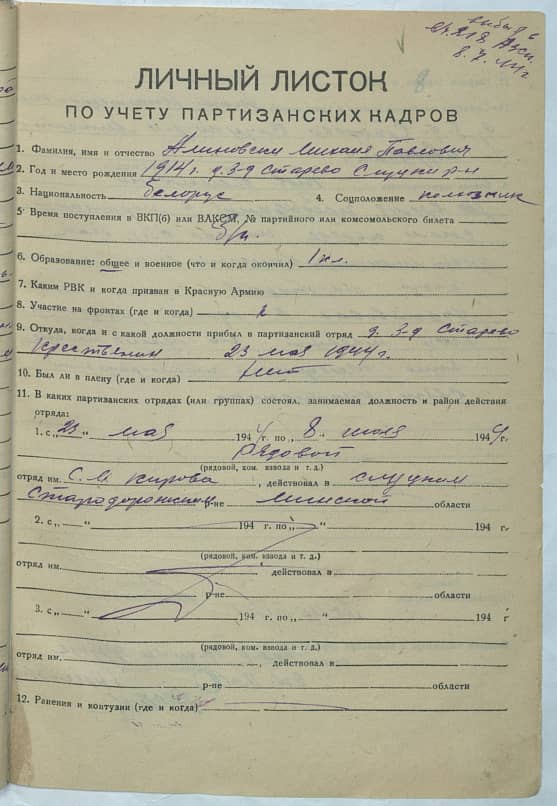 выбыл в
8.7.44г.
ЛИЧНЫЙ ЛИСТОК
ПО УЧЕТУ ПАРТИЗАНСКИХ КАДРОВ
1. Фамилия, имя и отчество Алиновски Михаил Павлович
2. Год и место рождения 1914г. д. З-д Старево Слуцки р-н
3. Национальность белорус 4. Соцположение колхозник
5. Время поступления в ВКП(б) или ВЛКСМ, № партийного или комсомольского билета
б/п.
6. Образование: общее и военное (что и когда окончил) 1 кл.
7. Каким РВК и когда призван в Красную Армию
8. Участие на фронтах (где и когда)
9. Откуда, когда и с какой должности прибыл в партизанский отряд д. З-д Старево
крестьянин 23 мая 1944г.
10. Был ли в плену (где и когда) нет
11. В каких партизанских отрядах (или группах) состоял, занимаемая должность и район действия
отряда:
1. с „23“ мая 1944 г. по „8“ июля 1944г.
рядовой
(рядовой, ком. взвода и т. д.)
отряд им. С. М. Кирова, действовал в слуцким
Стародорожским р-не Минской области
2. с „ “ 194 г. по „ “ 194 г.
(рядовой, ком. взвода и т. д.)
отряд им. , действовал в
р-не области
3. с „ “ 194 г. по „ “ 194 г
(рядовой, ком. взвода и т. д.)
отряд им. , действовал в
р-не области
12. Ранения и контузии (где и когда)